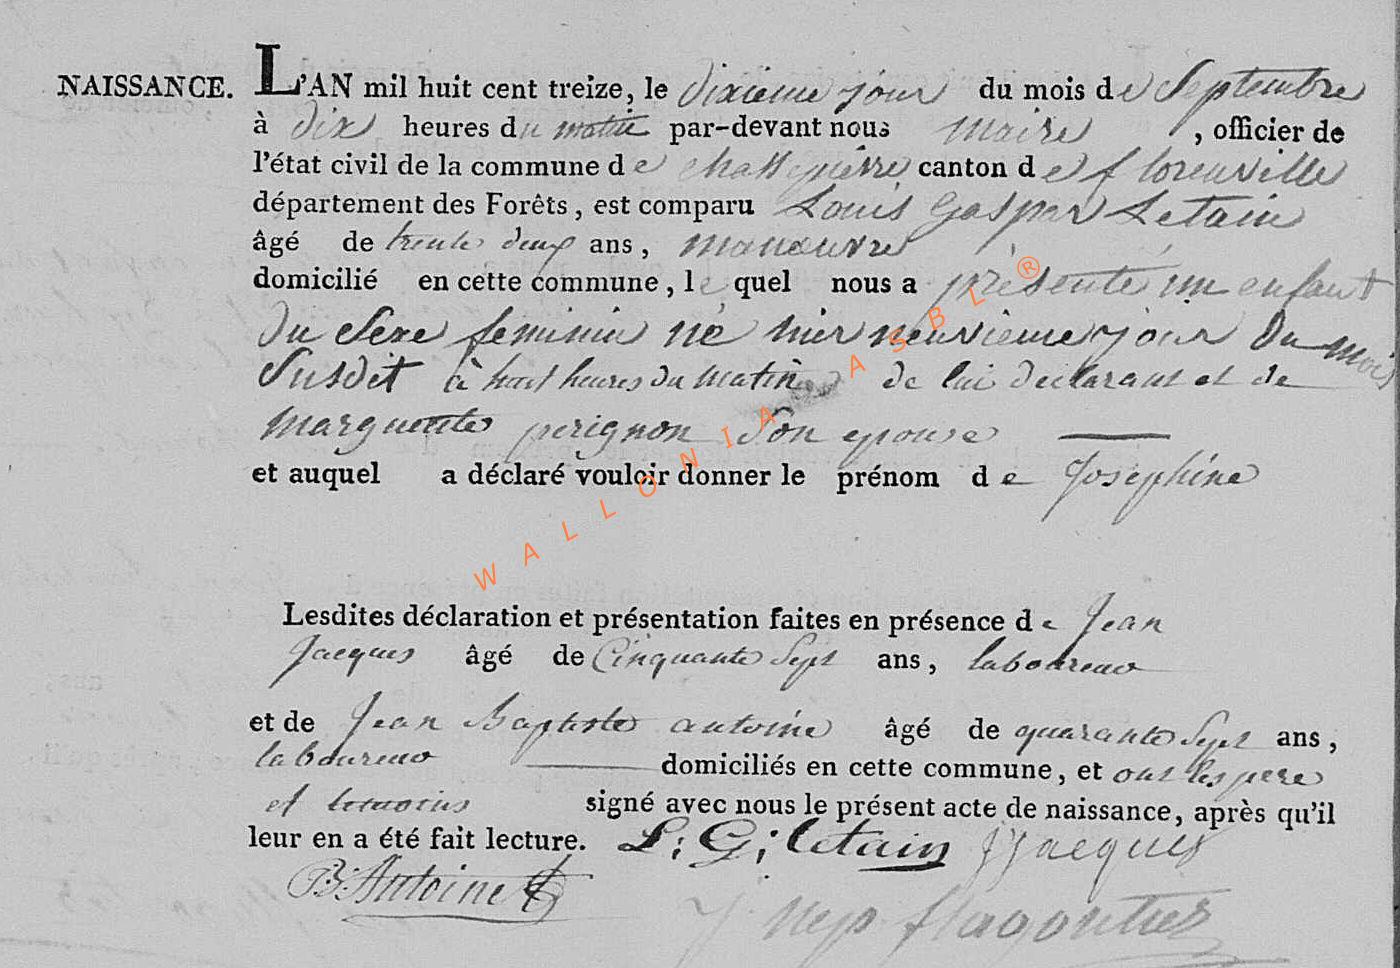 NAISSANCE. L'AN mil huit cent treize, le dixieme jour du mois de Septembre
à dix heures du matin par-devant nous maire , officier de
l'état civil de la commune de chassepierre canton de florenville
département des Forêts, est comparu Louis Gaspar Letain
âgé de trente deux ans, manœuvre
domicilié en cette commune, le quel nous a présenté un enfant
du Sexe feminin né hier neuvieme jour du mois
Susdit à huit heures du matin de lui declarant et de
Marguerite perignon Son epouse
et auquel a déclaré vouloir donner le prénom de Josephine
Lesdites déclaration et présentation faites en présence de Jean
Jacques âgé de Cinquante Sept ans, laboureur
et de Jean Baptiste antoine âgé de quarante Sept ans,
laboureur domiciliés en cette commune, et ont les pere
et temoins signé avec nous le présent acte de naissance, après qu'il
leur en a été fait lecture. L. G. letain J Jacques
B. Antoine
J. nep.
WALLONIA ASBL ®